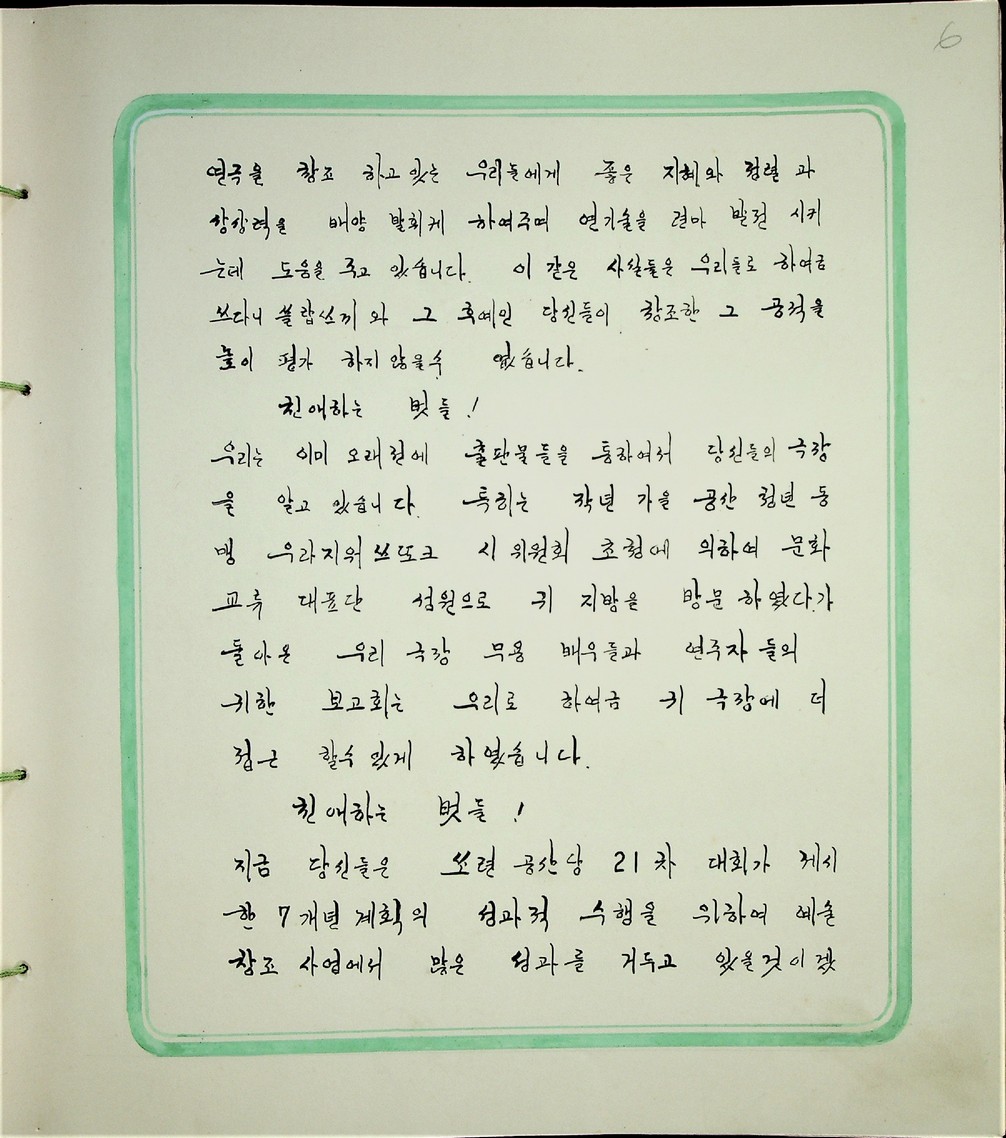 6
연극을 창조 하고 있는 우리들에게 좋은 지혜와 정렬 과
상상력을 배양 발휘케 하여주며 연기술을 련마 발전 시키
는데 도움을 주고 있습니다. 이 같은 사실들은 우리들로 하여금
쓰따니쓸랍쓰끼 와 그 후예인 당신들이 창조한 그 공적을
높이 평가 하지 않을수 없습니다.
친애하는 벗들!
우리는 이미 오래 전에 출판물들을 통하여서 당신들의 극장
을 알고 있습니다. 특히는 작년 가을 공산 청년 동
맹 우라지워쓰또크 시 위원회 초청에 의하여 문화
교류 대표단 성원으로 귀 지방을 방문 하였다가
돌아온 우리 극장 무용 배우들과 연주자 들의
귀한 보고회는 우리로 하여금 귀 극장에 더
접근 할수 있게 하였습니다.
친애하는 벗들!
지금 당신들은 쏘련 공산당 21 차 대회가 제시
한 7개년 계획의 성과적 수행을 위하여 예술
창조 사업에서 많은 성과를 거두고 있을것이겠